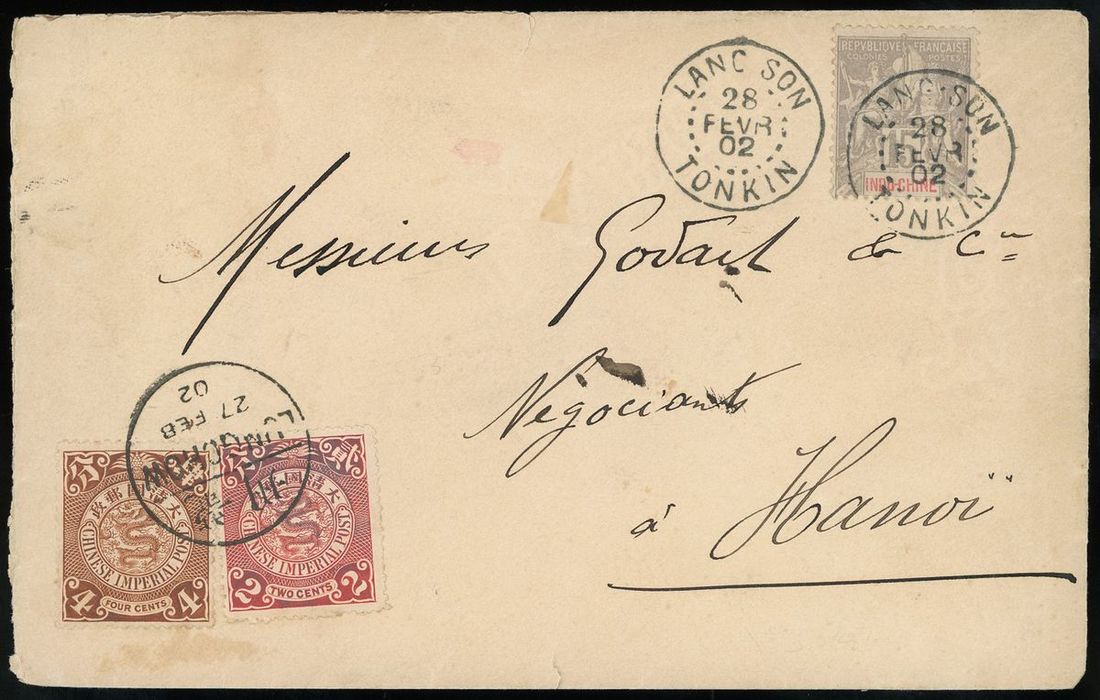 LANG SON
28
FEVR
02
TONKIN
REPVBLIQVE FRANÇAISE
COLONIES POSTES
15
INDO-CHINE
LANG-SON
28
FEVR
02
TONKIN
Messieurs Godart & Cie
Négociants
à Hanoï
LUNGCHOW
27 FEB
02
州
大清國郵政
CHINESE IMPERIAL POST
4 FOUR CENTS 4
貳
大清國
CHINESE IMPERIAL POST
2 TWO CENTS 2